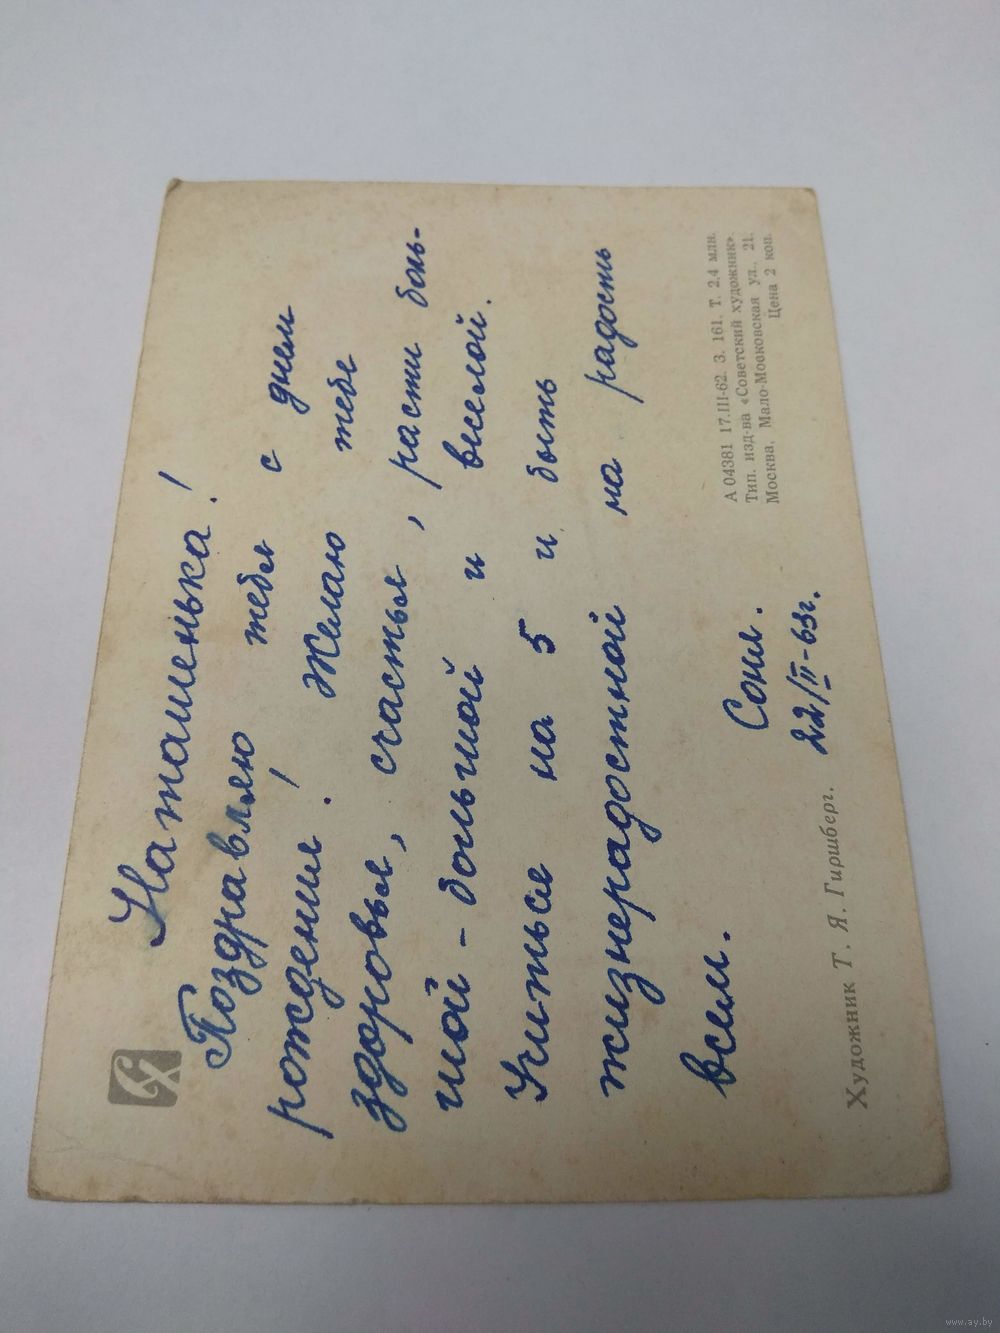 Наташенька!
Поздравляю тебя с днем
рождения! Желаю тебе
здоровья, счастья, расти боль-
шой-большой и веселой.
Учиться на 5 и быть
жизнерадостной на радость
всем.
Соня.
22/II-63г.
А 04381 17.III-62. З. 161. Т. 2,4 млн.
Тип. изд-ва «Советский художник».
Москва, Мало-Московская ул., 21.
Цена 2 коп.
Художник Т. Я. Гиршберг.
www.ay.by